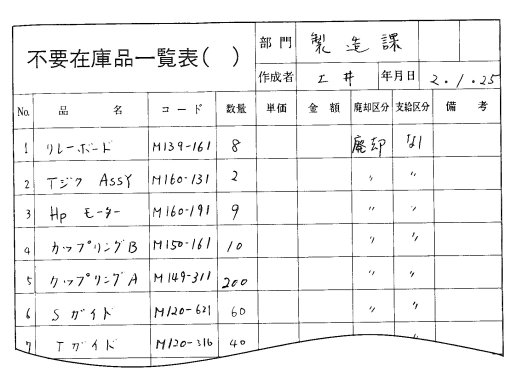 不要在庫品一覧表( )
部門 製造課
作成者 工井 年月日 2.1.25
No. 品名 コード 数量 単価 金額 廃却区分 支給区分 備考
1 リレーボード M139-161 8 廃却 なし
2 Tジク ASSY M160-131 2 〃 〃
3 Hp モーター M160-191 9 〃 〃
4 カップリングB M150-161 10 〃 〃
5 カップリングA M149-311 200 〃 〃
6 Sガイド M120-621 60 〃 〃
7 Tガイド M120-316 40 〃 〃